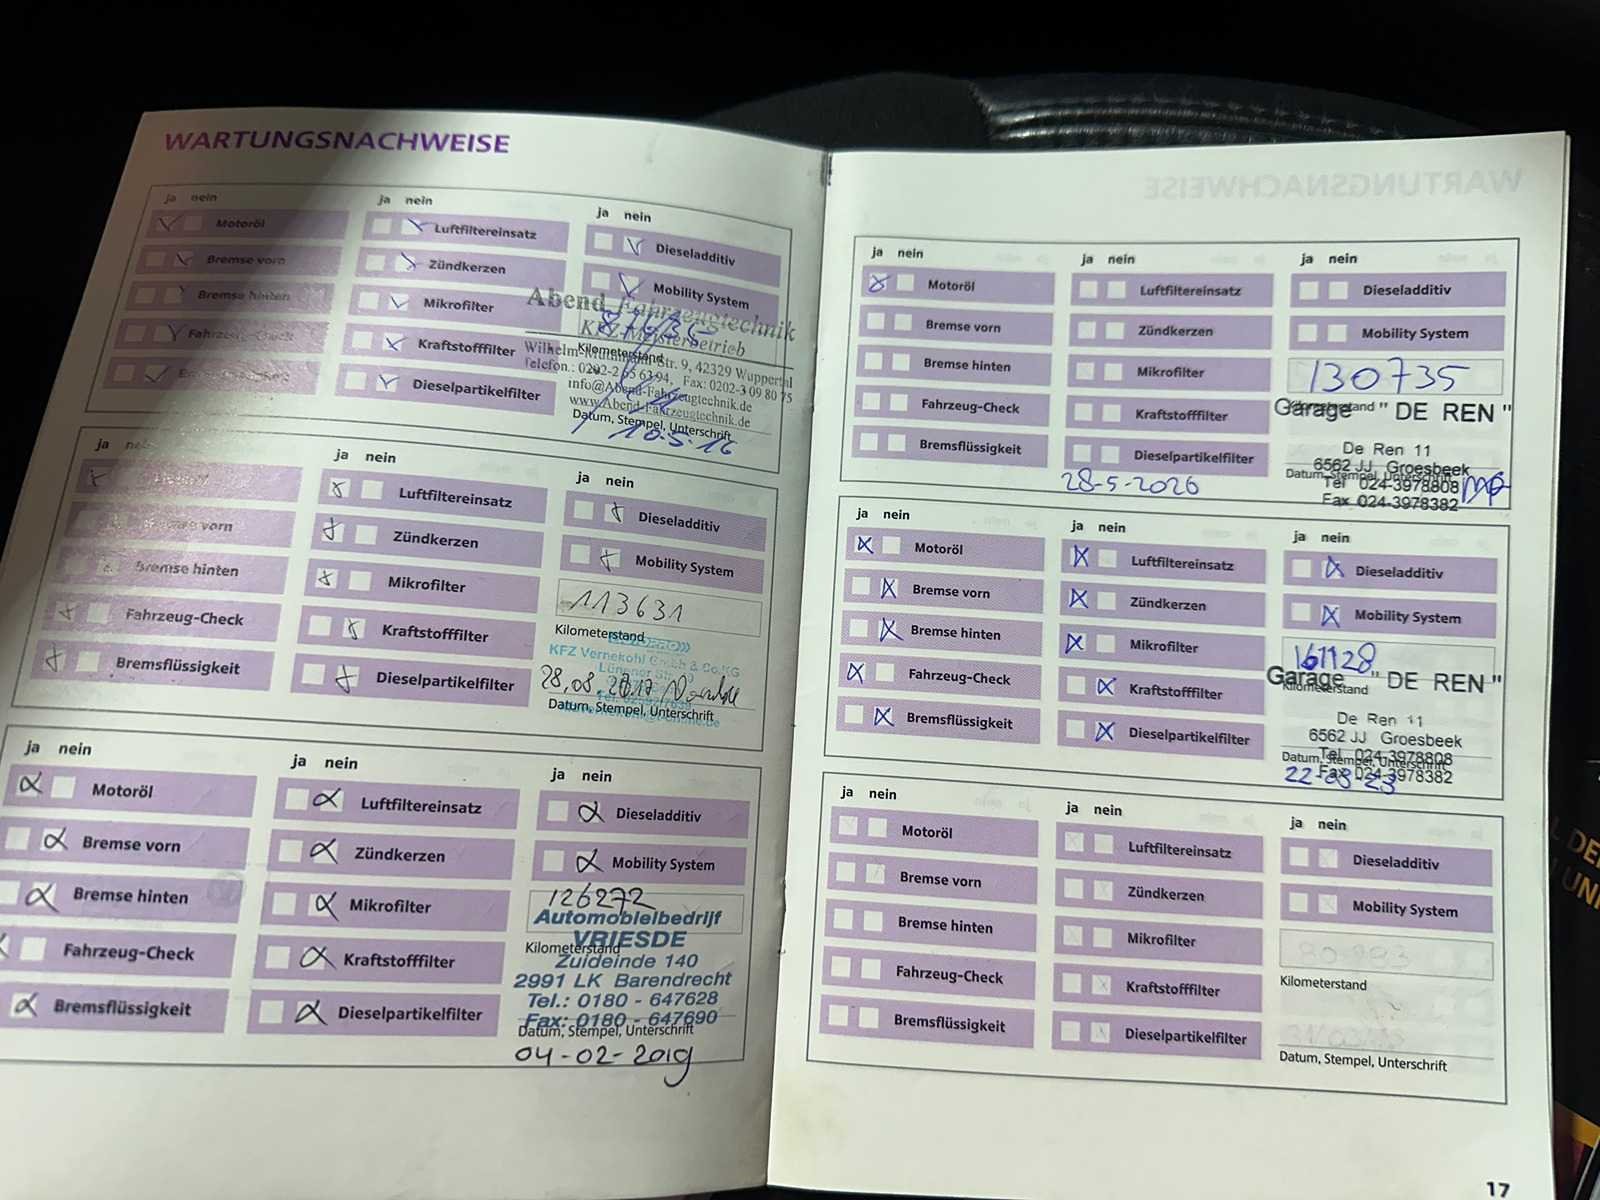 WARTUNGSNACHWEISE
ja nein
Motoröl
Bremse vorn
Bremse hinten
Fahrzeug-Check
ja nein
Luftfiltereinsatz
Zündkerzen
Mikrofilter
Kraftstofffilter
Dieselpartikelfilter
ja nein
Dieseladditiv
Mobility System
Abend Fahrzeugtechnik
KFZ-Meisterbetrieb
Kilometerstand
Str. 9, 42329 Wuppertal
Fax: 0202-3 09 80 75
info@Abend-Fahrzeugtechnik.de
www.Abend-Fahrzeugtechnik.de
Datum, Stempel, Unterschrift
10.5.16
ja
vorn
Bremse hinten
Fahrzeug-Check
Bremsflüssigkeit
ja nein
Luftfiltereinsatz
Zündkerzen
Mikrofilter
Kraftstofffilter
Dieselpartikelfilter
ja nein
Dieseladditiv
Mobility System
113631
Kilometerstand
KFZ Vernekohl GmbH & Co.KG
28.08.2017
Datum, Stempel, Unterschrift
ja nein
Motoröl
Bremse vorn
Bremse hinten
Fahrzeug-Check
Bremsflüssigkeit
ja nein
Luftfiltereinsatz
Zündkerzen
Mikrofilter
Kraftstofffilter
Dieselpartikelfilter
ja nein
Dieseladditiv
Mobility System
126272
Automobielbedrijf
VRIESDE
Kilometerstand
Zuideinde 140
2991 LK Barendrecht
Tel.: 0180 - 647628
Fax: 0180 - 647690
Datum, Stempel, Unterschrift
04-02-2019
ja nein
Motoröl
Bremse vorn
Bremse hinten
Fahrzeug-Check
Bremsflüssigkeit
ja nein
Luftfiltereinsatz
Zündkerzen
Mikrofilter
Kraftstofffilter
Dieselpartikelfilter
28-5-2020
ja nein
Dieseladditiv
Mobility System
130735
Kilometerstand
Garage "DE REN"
De Ren 11
6562 JJ Groesbeek
Datum, Stempel, Unterschrift
Tel 024-3978808
Fax 024-3978382
ja nein
Motoröl
Bremse vorn
Bremse hinten
Fahrzeug-Check
Bremsflüssigkeit
ja nein
Luftfiltereinsatz
Zündkerzen
Mikrofilter
Kraftstofffilter
Dieselpartikelfilter
ja nein
Dieseladditiv
Mobility System
161128
Garage "DE REN"
Kilometerstand
De Ren 11
6562 JJ Groesbeek
Tel 024-3978808
Datum, Stempel, Unterschrift
Fax 024-3978382
22-08-23
ja nein
Motoröl
Bremse vorn
Bremse hinten
Fahrzeug-Check
Bremsflüssigkeit
ja nein
Luftfiltereinsatz
Zündkerzen
Mikrofilter
Kraftstofffilter
Dieselpartikelfilter
ja nein
Dieseladditiv
Mobility System
Kilometerstand
Datum, Stempel, Unterschrift
17